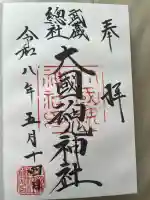 奉拝
武蔵
總社
大國魂神社
令和八年五月十四日